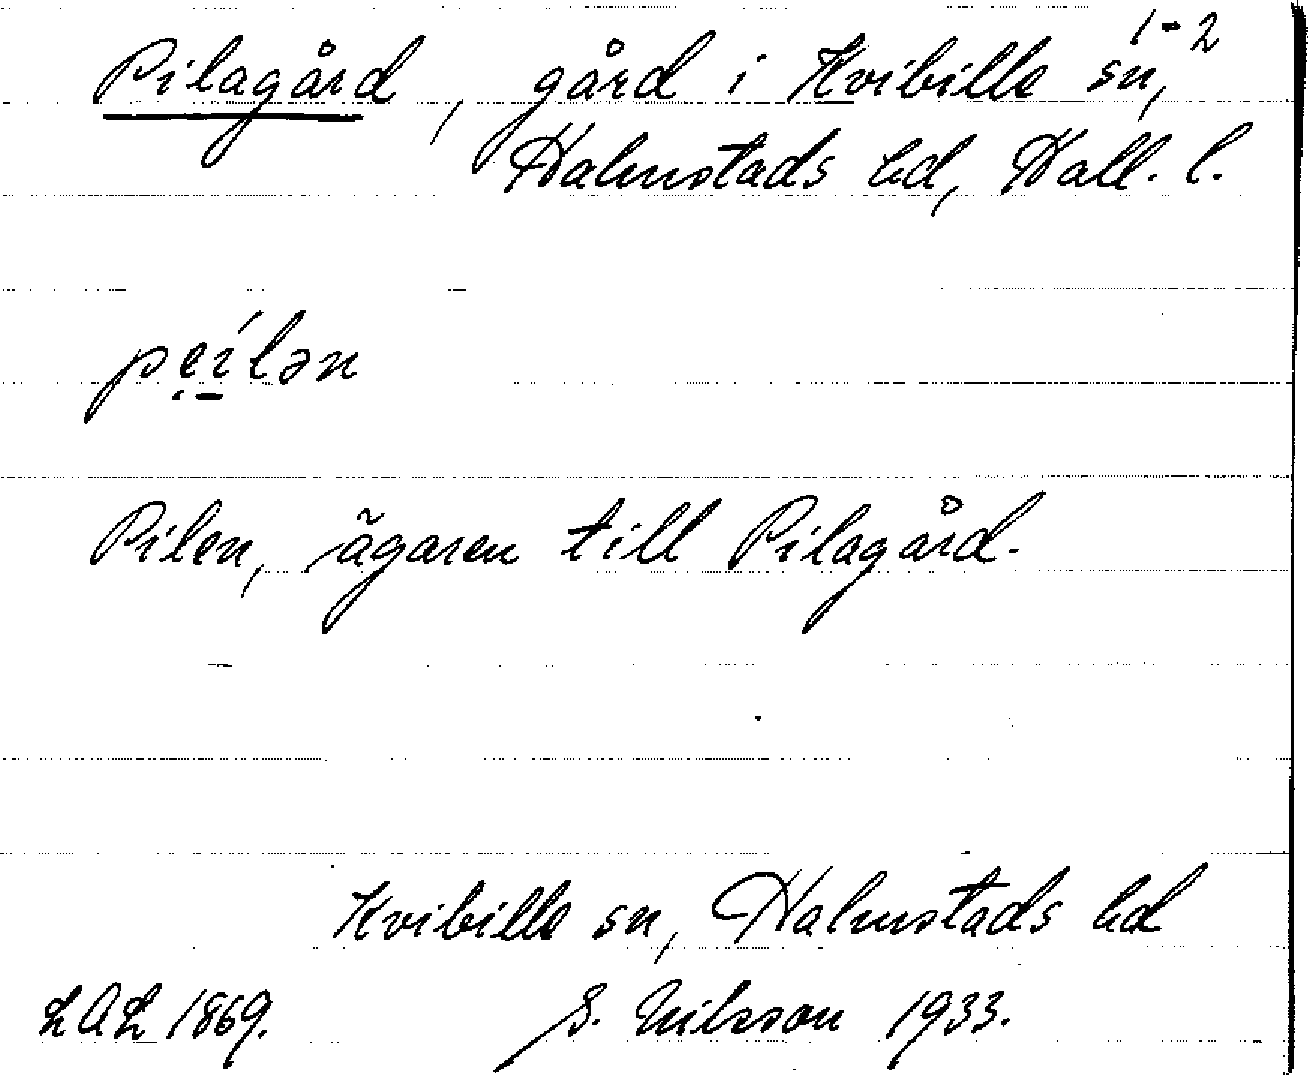 1-2
Pilagård, gård i Kvibille sn,
Halmstads hd, Hall. l.
pẹílən
Pilen, ägaren till Pilagård.
Kvibille sn, Halmstads hd
LAL 1869. S. Nilsson 1933.